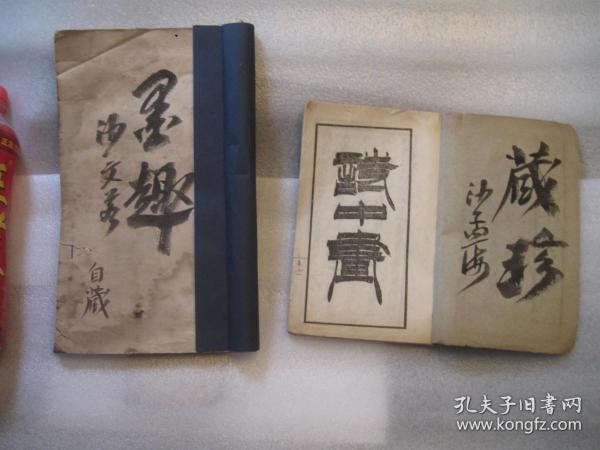 墨趣
沙文若
自藏
詩中畫
藏珍
沙孟海
孔夫子旧书网
www.kongfz.com